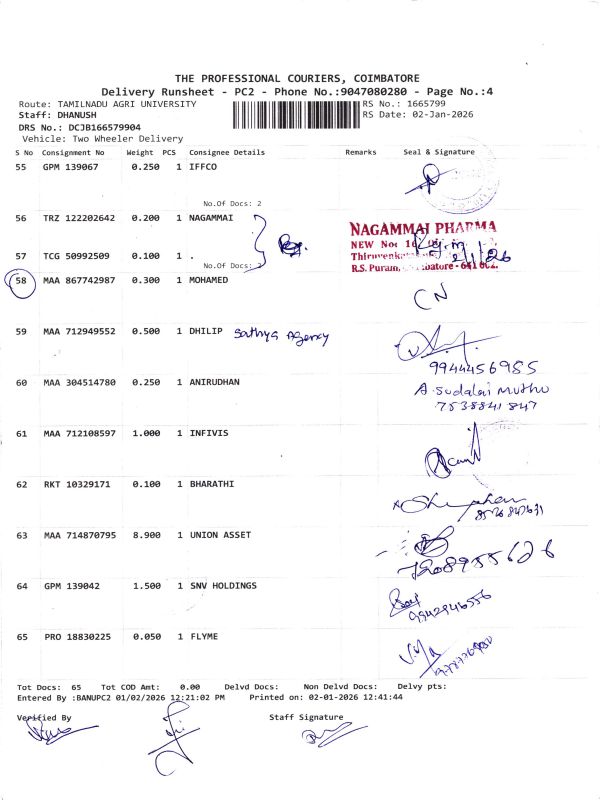 THE PROFESSIONAL COURIERS, COIMBATORE
Delivery Runsheet - PC2 - Phone No.:9047080280 - Page No.:4
Route: TAMILNADU AGRI UNIVERSITY RS No.: 1665799
Staff: DHANUSH RS Date: 02-Jan-2026
DRS No.: DCJB166579904
Vehicle: Two Wheeler Delivery
S No Consignment No Weight PCS Consignee Details Remarks Seal & Signature
55 GPM 139067 0.250 1 IFFCO
No.Of Docs: 2
56 TRZ 122202642 0.200 1 NAGAMMAI
NAGAMMAI PHARMA
NEW No: 16
57 TCG 50992509 0.100 1 .
2/1/26
No.Of Docs: 2
R.S. Puram,
58 MAA 867742987 0.300 1 MOHAMED
CN
59 MAA 712949552 0.500 1 DHILIP Sathya Agency
9944456985
60 MAA 304514780 0.250 1 ANIRUDHAN A. Sudalai Muthu
7538841847
61 MAA 712108597 1.000 1 INFIVIS
62 RKT 10329171 0.100 1 BHARATHI
63 MAA 714870795 8.900 1 UNION ASSET
64 GPM 139042 1.500 1 SNV HOLDINGS
9942946556
65 PRO 18830225 0.050 1 FLYME
Tot Docs: 65 Tot COD Amt: 0.00 Delvd Docs: Non Delvd Docs: Delvy pts:
Entered By :BANUPC2 01/02/2026 12:21:02 PM Printed on: 02-01-2026 12:41:44
Verified By Staff Signature